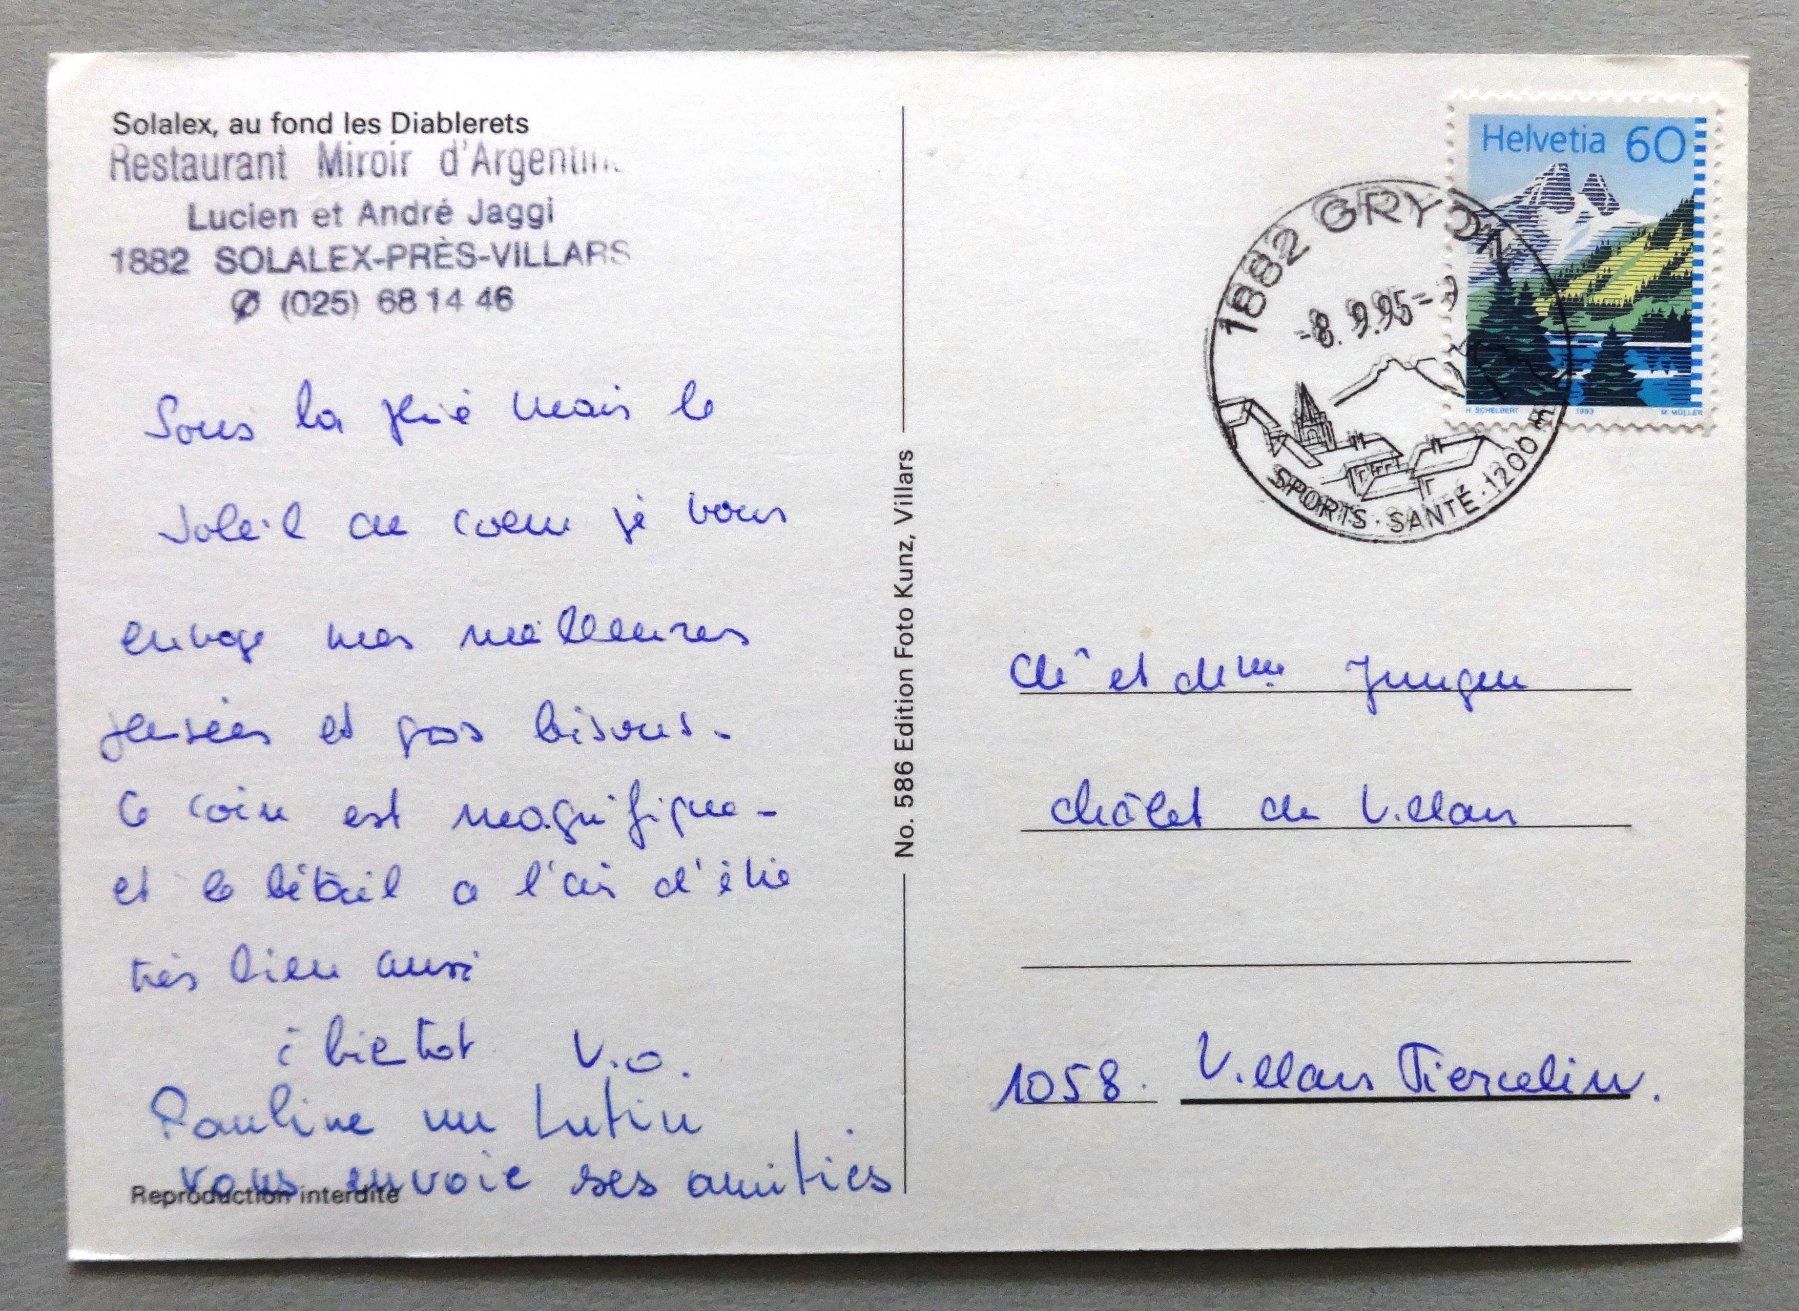 Solalex, au fond les Diablerets
Restaurant Miroir d'Argentin
Lucien et André Jaggi
1882 SOLALEX-PRÈS-VILLARS
(025) 68 14 46
Sous la pluie mais le
Soleil au coeur je vous
envoye mes meilleures
pensées et gros bisous.
Ce coin est magnifique -
et le bétail a l'air d'être
très bien aussi
à bientot V.o.
Pauline un Lutin
vous envoie ses amitiés
Reproduction interdite
No. 586 Edition Foto Kunz, Villars
Helvetia 60
H. SCHELBERT 1993 M. MÜLLER
1882 GRYON
-8. 9.95-
SPORTS · SANTÉ · 1200 m
et Jungen
châlet de Villars
1058 Villars Tiercelin.